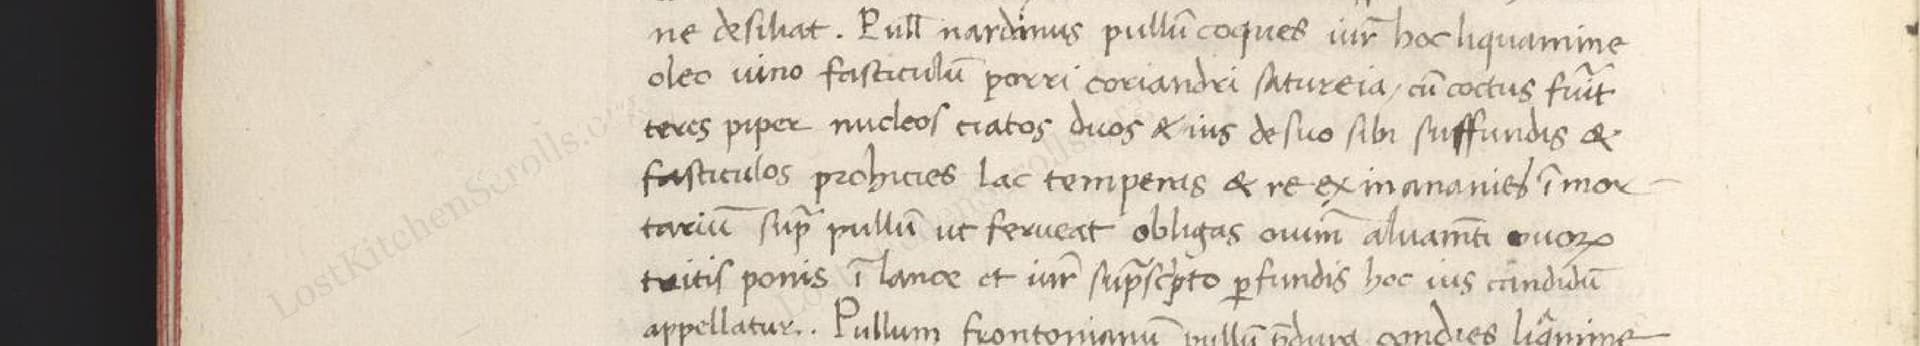 ne desiliat. Pull̄ nardinus pullū coques iur̄ hoc liquamine
oleo uino fasticulū porri coriandri satureia, cū coctus fuīt
teres piper nucleos ciatos duos & ius de suo sibi suffundis &
fasticulos prohicies lac temperas & re exinanies ī mor
tariū sup̄ pullū ut ferueat obligas ouim̄ aluam̄ti ouoꝝ
tritis ponis ī lance et iur̄ sup̄scp̄to ꝑfundis hoc ius candidū
appellatur.. Pullum frontonianū pullū p̄dura condies liq̄mine
LostKitchenScrolls.org